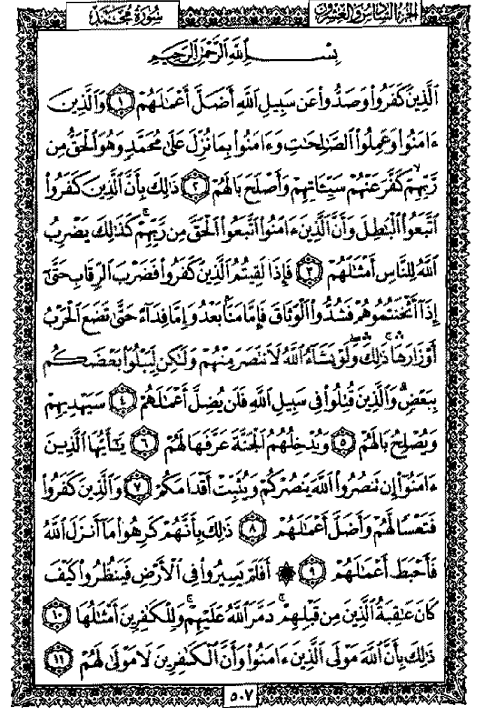 الجزء السادس والعشرون
سورة محمد
بسم الله الرحمن الرحيم
الَّذِينَ كَفَرُوا۟ وَصَدُّوا۟ عَن سَبِيلِ اللَّهِ أَضَلَّ أَعْمَٰلَهُمْ ١ وَالَّذِينَ
ءَامَنُوا۟ وَعَمِلُوا۟ الصَّٰلِحَٰتِ وَءَامَنُوا۟ بِمَا نُزِّلَ عَلَىٰ مُحَمَّدٍ وَهُوَ الْحَقُّ مِن
رَّبِّهِمْ ۙ كَفَّرَ عَنْهُمْ سَيِّـَٔاتِهِمْ وَأَصْلَحَ بَالَهُمْ ٢ ذَٰلِكَ بِأَنَّ الَّذِينَ كَفَرُوا۟
اتَّبَعُوا۟ الْبَٰطِلَ وَأَنَّ الَّذِينَ ءَامَنُوا۟ اتَّبَعُوا۟ الْحَقَّ مِن رَّبِّهِمْ ۚ كَذَٰلِكَ يَضْرِبُ
اللَّهُ لِلنَّاسِ أَمْثَٰلَهُمْ ٣ فَإِذَا لَقِيتُمُ الَّذِينَ كَفَرُوا۟ فَضَرْبَ الرِّقَابِ حَتَّىٰٓ
إِذَآ أَثْخَنتُمُوهُمْ فَشُدُّوا۟ الْوَثَاقَ فَإِمَّا مَنًّۢا بَعْدُ وَإِمَّا فِدَآءً حَتَّىٰ تَضَعَ الْحَرْبُ
أَوْزَارَهَا ۚ ذَٰلِكَ ۖ وَلَوْ يَشَآءُ اللَّهُ لَانتَصَرَ مِنْهُمْ وَلَٰكِن لِّيَبْلُوَا۟ بَعْضَكُم
بِبَعْضٍ ۗ وَالَّذِينَ قُتِلُوا۟ فِي سَبِيلِ اللَّهِ فَلَن يُضِلَّ أَعْمَٰلَهُمْ ٤ سَيَهْدِيهِمْ
وَيُصْلِحُ بَالَهُمْ ٥ وَيُدْخِلُهُمُ الْجَنَّةَ عَرَّفَهَا لَهُمْ ٦ يَٰٓأَيُّهَا الَّذِينَ
ءَامَنُوٓا۟ إِن تَنصُرُوا۟ اللَّهَ يَنصُرْكُمْ وَيُثَبِّتْ أَقْدَامَكُمْ ٧ وَالَّذِينَ كَفَرُوا۟
فَتَعْسًا لَّهُمْ وَأَضَلَّ أَعْمَٰلَهُمْ ٨ ذَٰلِكَ بِأَنَّهُمْ كَرِهُوا۟ مَآ أَنزَلَ اللَّهُ
فَأَحْبَطَ أَعْمَٰلَهُمْ ٩ ۞ أَفَلَمْ يَسِيرُوا۟ فِي الْأَرْضِ فَيَنظُرُوا۟ كَيْفَ
كَانَ عَٰقِبَةُ الَّذِينَ مِن قَبْلِهِمْ ۚ دَمَّرَ اللَّهُ عَلَيْهِمْ ۖ وَلِلْكَٰفِرِينَ أَمْثَٰلُهَا ١٠
ذَٰلِكَ بِأَنَّ اللَّهَ مَوْلَى الَّذِينَ ءَامَنُوا۟ وَأَنَّ الْكَٰفِرِينَ لَا مَوْلَىٰ لَهُمْ ١١
٥٠٧